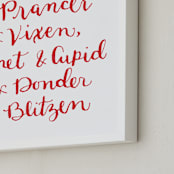 Prancer
& Vixen,
met & Cupid
& Donder
Blitzen